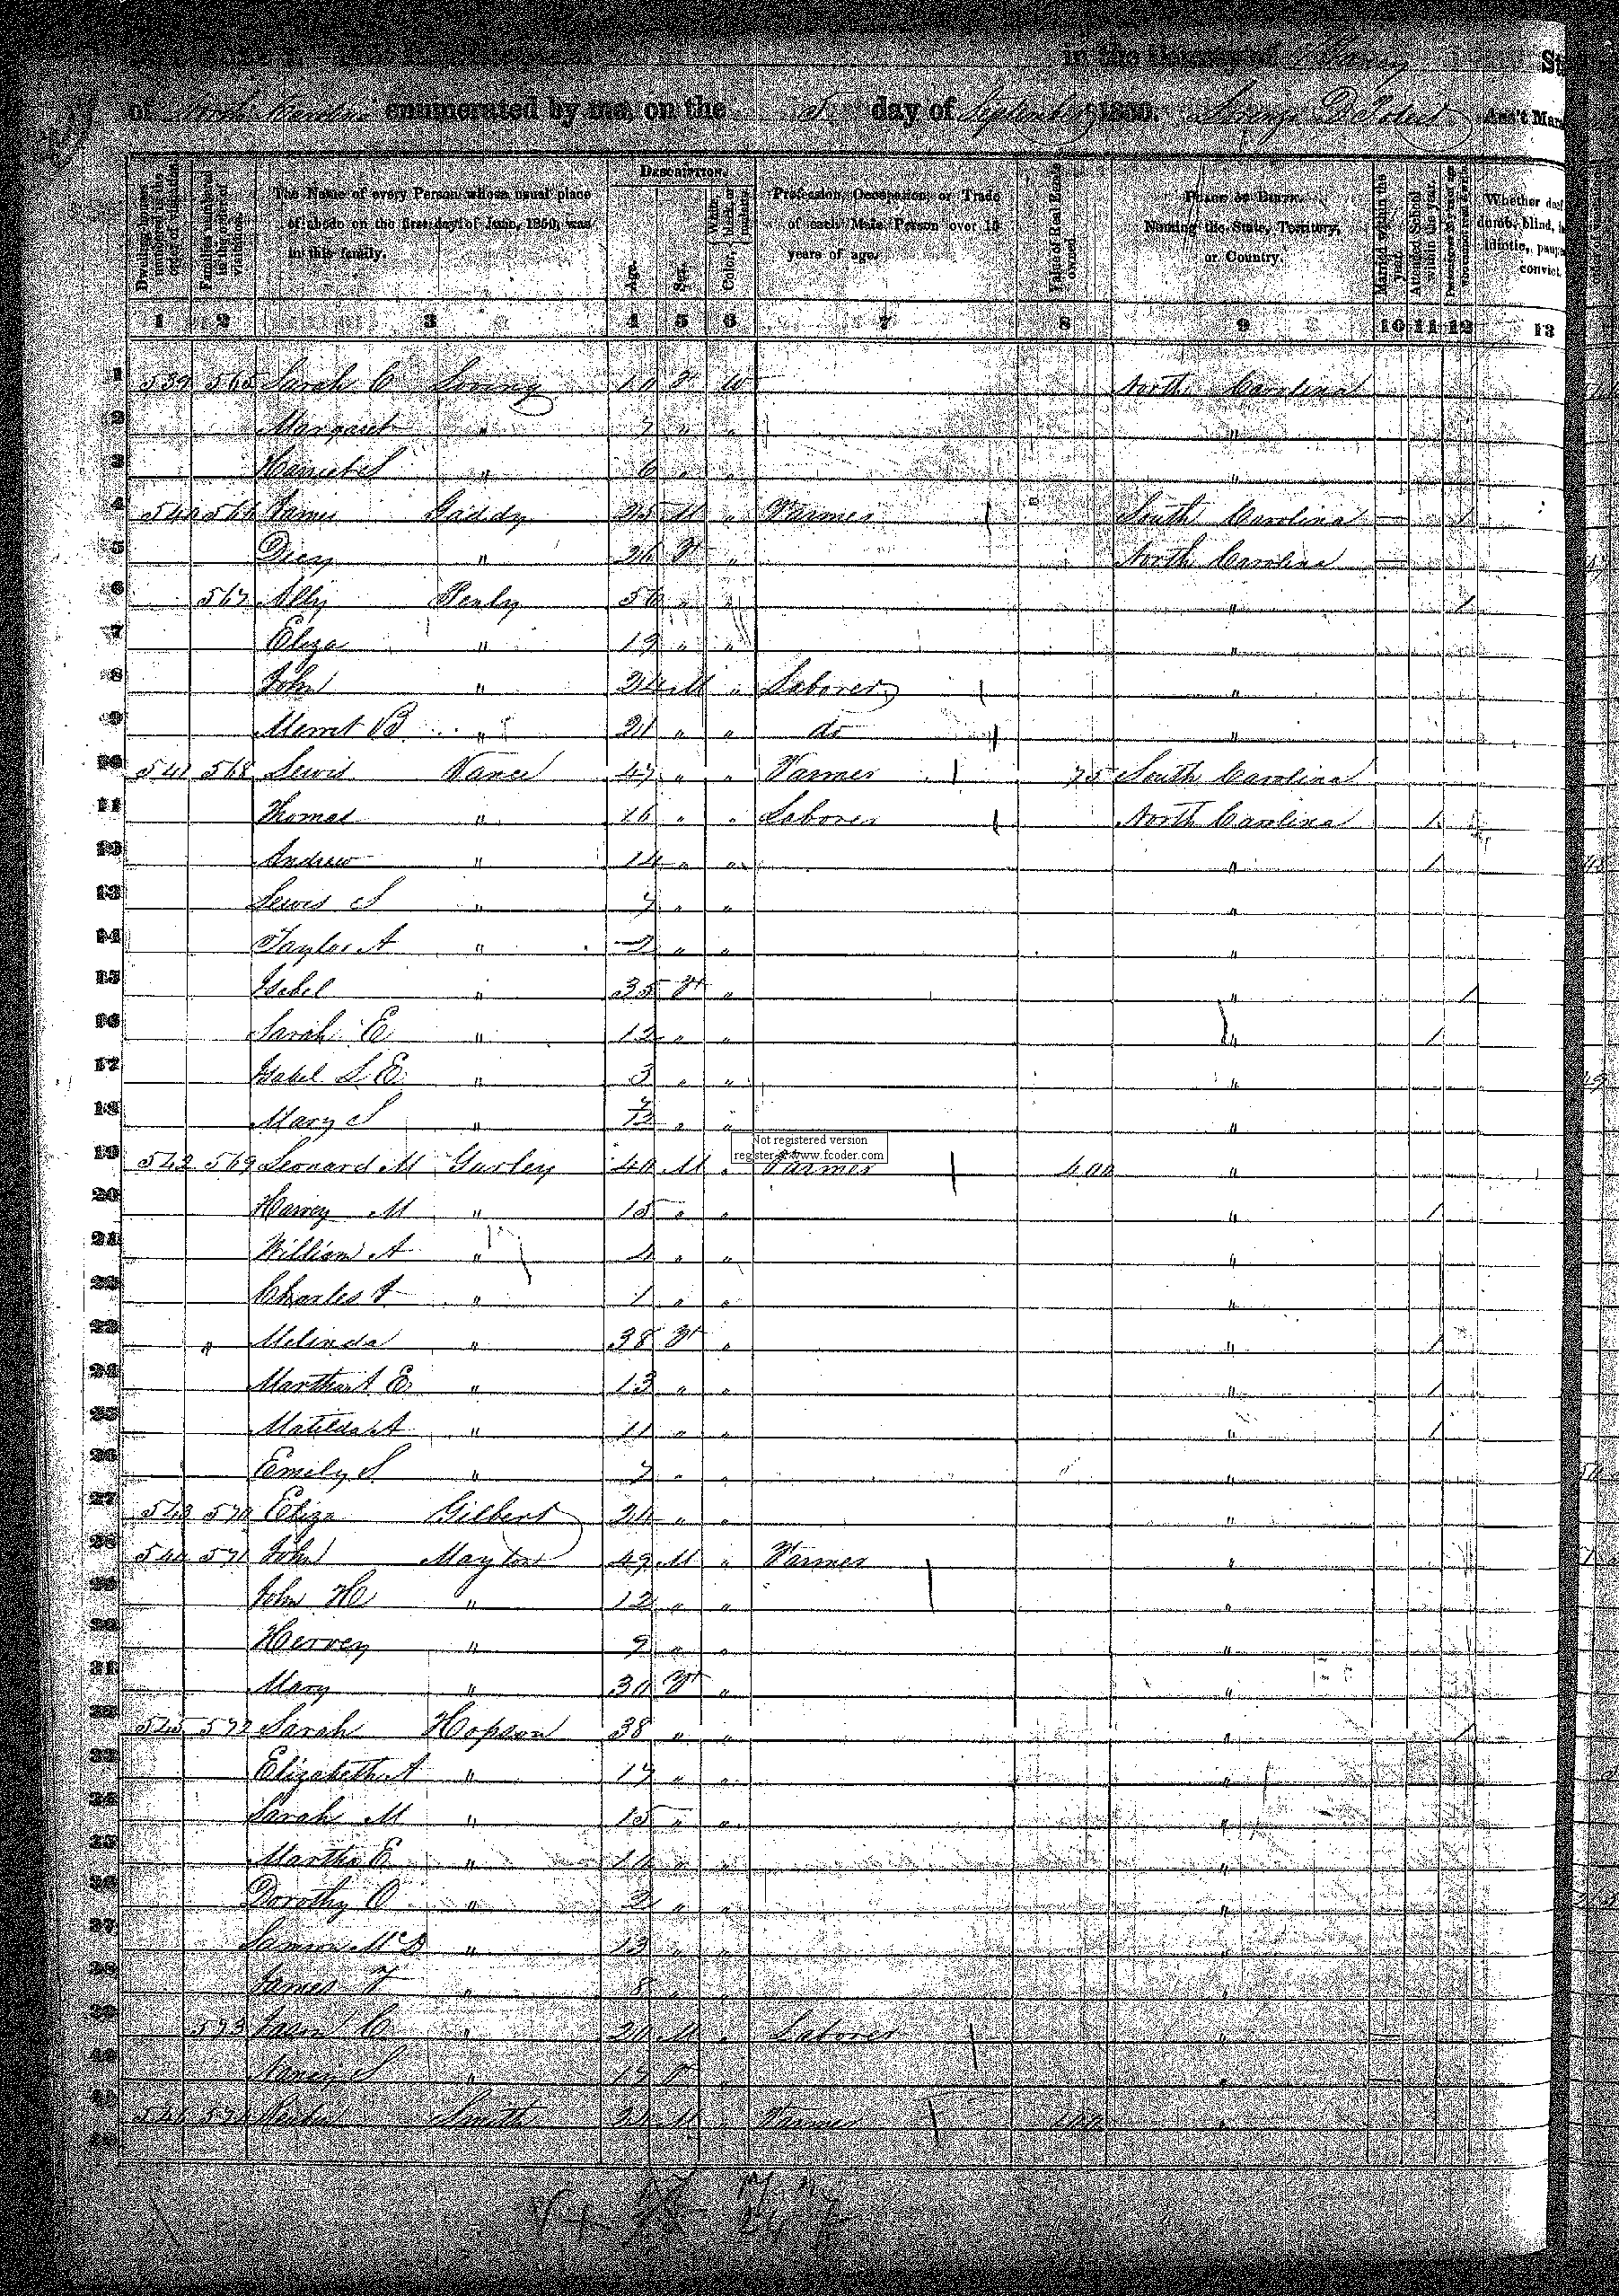 in the County of
St
of North Carolina enumerated by me, on the 5 day of September 1850. Ass't Mars
Dwelling-houses numbered in the order of visitation.
Families numbered in the order of visitation.
The Name of every Person whose usual place of abode on the first day of June, 1850, was in this family.
Description.
Age.
Sex.
Color, White, black, or mulatto.
Profession, Occupation, or Trade of each Male Person over 15 years of age.
Value of Real Estate owned.
Place of Birth. Naming the State, Territory, or Country.
Married within the year.
Attended School within the year.
Whether deaf dumb, blind, idiotic, convict.
1 2 3 4 5 6 7 8 9 10 11 12 13
1 539 565 Sarah C Loving 10 F W North Carolina
2 Margaret " 7 " " "
3 Harriet S " 6 " " "
4 540 566 James Gaddy 25 M " Farmer South Carolina 1
5 " 26 F " North Carolina
6 567 Ally 56 " " " 1
7 Eliza " 19 " " "
8 John " 24 M " Laborer "
9 Merrit B " 21 " " do "
10 541 568 Lewis Vance 47 " " Farmer 75 South Carolina
11 Thomas " 16 " " Laborer North Carolina 1
12 Andrew " 14 " " " 1
13 Lewis S " 7 " " "
14 Taylor A " 2 " " "
15 Isabel " 35 F " " 1
16 Sarah E " 12 " " " 1
17 Isabel L E " 3 " " "
18 Mary S " 7/12 " " "
Not registered version
register at www.fcoder.com
19 542 569 Leonard M Gurley 40 M " Farmer 400 "
20 Harvey M " 15 " " " 1
21 William A " 4 " " "
22 Charles F " 1 " " "
23 " Melinda " 38 F " " 1
24 Martha A E " 13 " " " 1
25 Matilda A " 11 " " " 1
26 Emily S " 7 " " "
27 543 570 Eliza Gilbert 24 " " "
28 544 571 John Maylon 49 M " Farmer "
29 John H " 12 " " "
30 Hervey " 9 " " "
31 Mary " 30 F " "
32 545 572 Sarah Hopson 38 " " " 1
33 Elizabeth A " 17 " " "
34 Sarah M " 15 " " "
35 Martha E " " " "
36 Dorothy O " 2 " " "
37 McD " 13 " " "
38 James F " 8 " " "
39 573 C " 20 M " Laborer "
40 Nancy S " 17 F " "
41 546 574 Smith M " Farmer "
42